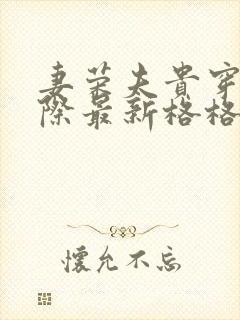 妻荣夫贵穿
际最新格格
懷允不忘